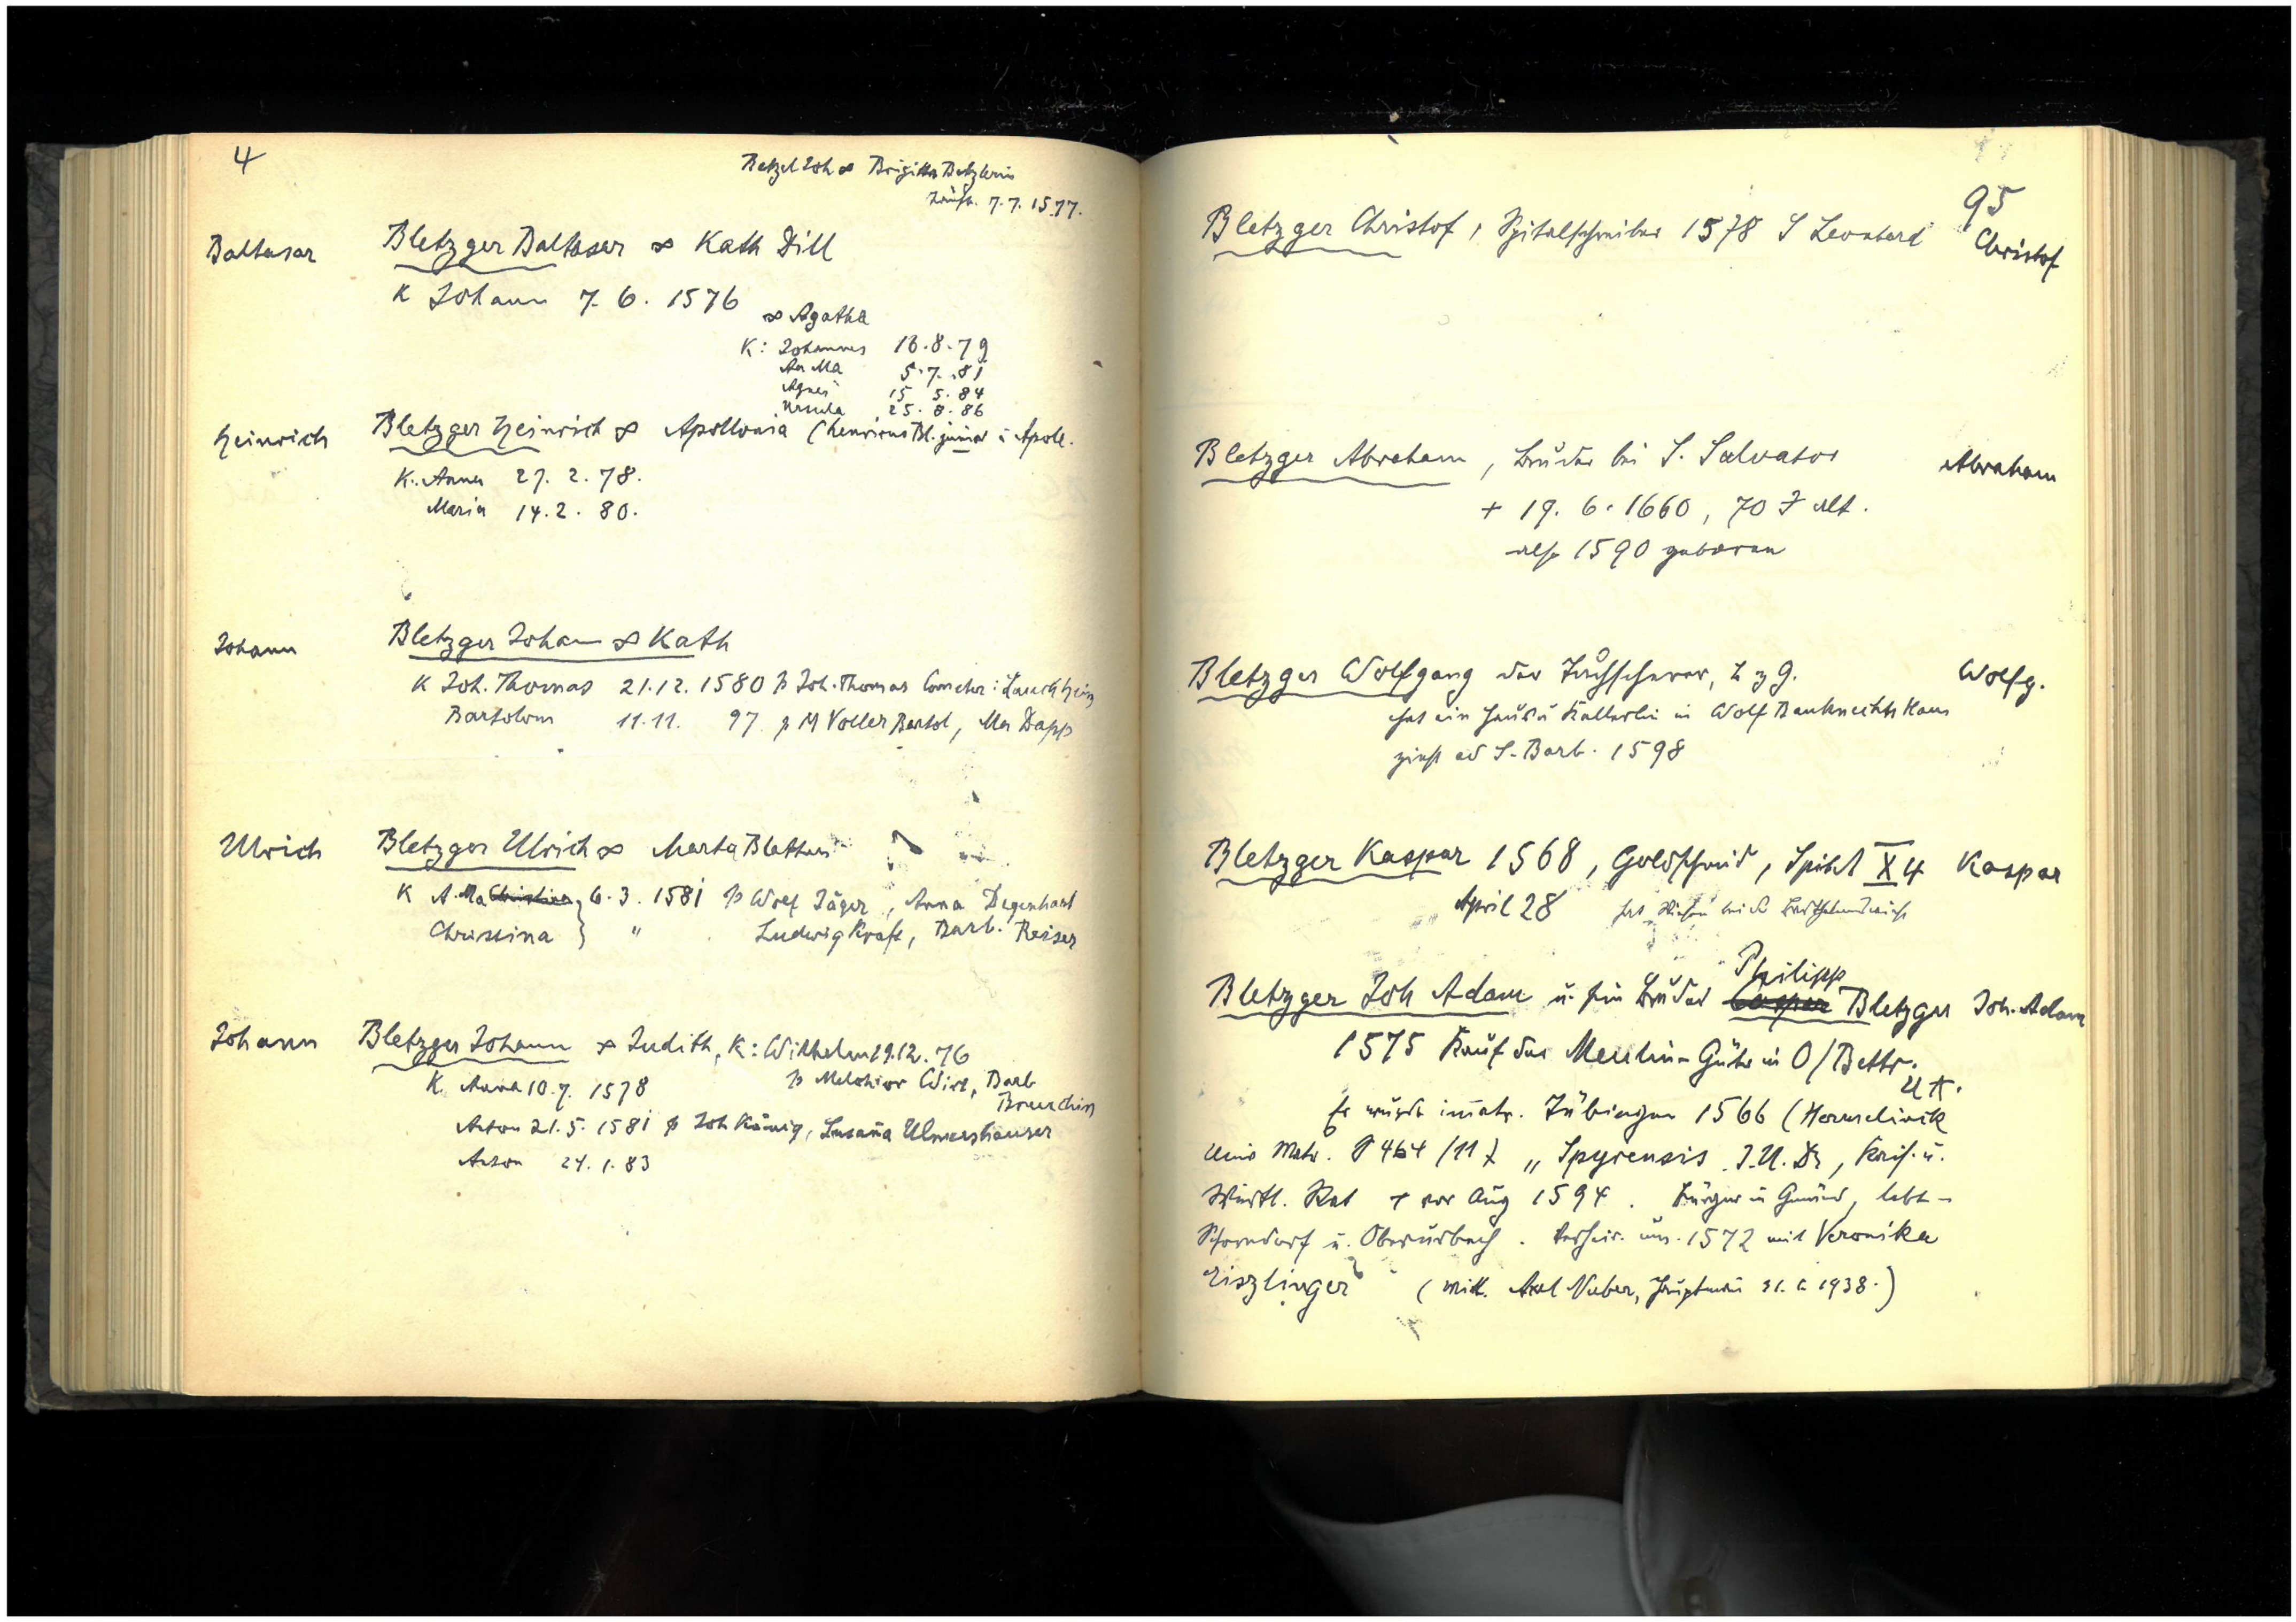 4
Betzel Joh ∞ Brigitta Betzlerin
7.7.1577.
Baltasar
Bletzger Baltasar ∞ Kath Dill
K Johann 7.6.1576
∞ Agatha
K: Johannes 18.8.79
An Ma 5.7.81
Agnes 15 5.84
Ursula 25.8.86
Heinrich
Bletzger Heinrich ∞ Apollonia (henricus Bl. junior i Apoll.
K. Anna 27.2.78.
Maria 14.2.80.
Johann
Bletzger Johann ∞ Kath
K Joh. Thomas 21.12.1580 p Joh. Thomas
Bartolom 11.11. 97 p M Voller Bartol, Mar Dapp
Ulrich
Bletzger Ulrich ∞ Marta
K A. Ma 6.3.1581 p Wolf Jäger, Anna Degenhart
Christina } " Ludwig Kraft, Barb. Reiser
Johann
Bletzger Johann ∞ Judith, K: Wilhelm 29.12.76
p Melchior Wirt, Barb
K. Anna 10.7.1578
Anton 21.5.1581 p Joh König, Susaña Ulmershauser
Anton 24.1.83
95
Bletzger Christof, Spitalschreiber 1578 S Leonhard
Christof
Bletzger Abraham, Bruder bei S. Salvator
Abraham
+ 19.6.1660, 70 J alt.
also 1590 geboren
Bletzger Wolfgang der Tuchscherer, Z z G.
Wolfg.
hat ein Haus u Kellerlin in Wolf Bauknechts Haus
zinst ad S. Barb. 1598
Bletzger Kaspar 1568, Goldschmid, Spital X 4
Kaspar
April 28 hat Wiesen bei der
Philipp
Bletzger Joh Adam u. sein Bruder Caspar Bletzger
Joh. Adam
1575 Kauf der Güter in O/Bettr.
u A.
Er wurde imatr. Tübingen 1566 (Hermelinik
Univ Matr. S 464 /11) „Spyrensis J.U.Dr, Kais. u.
Württ. Rat + vor Aug 1594. Bürger in Gmünd, lebt in
Schorndorf u. Oberurbach. Verheir. um. 1572 mit Veronika
Eiszlinger (Mitt. Axel Naber, Hauptmañ 1938.)